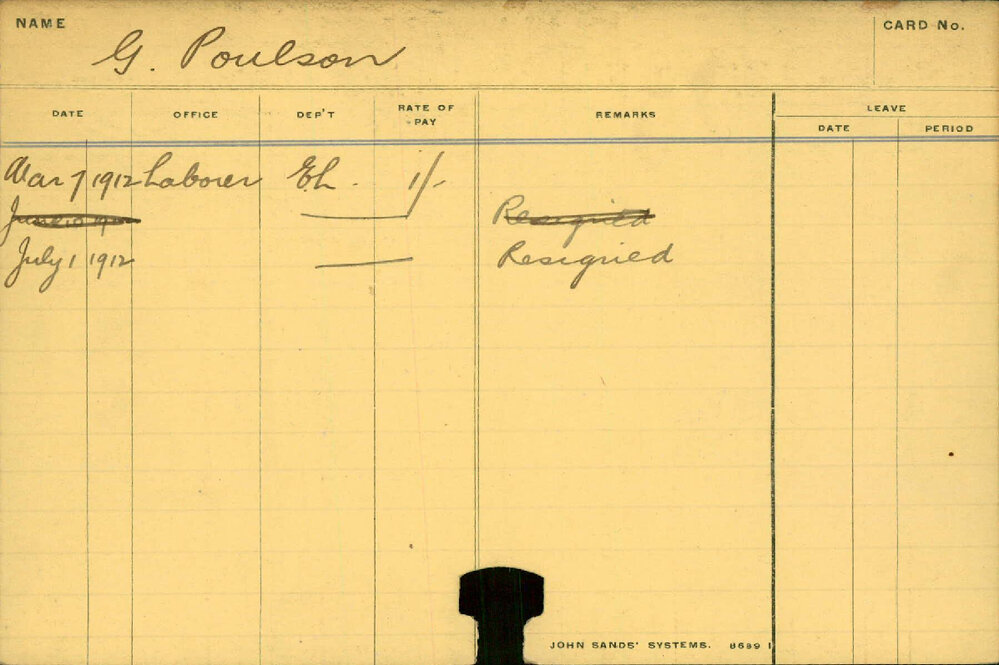 NAME G. Poulson CARD No.
DATE OFFICE DEP'T RATE OF PAY REMARKS LEAVE
DATE PERIOD
Mar 7 1912 Laborer E.L. 1/-
Resigned
July 1 1912 Resigned
JOHN SANDS' SYSTEMS. 8689 1